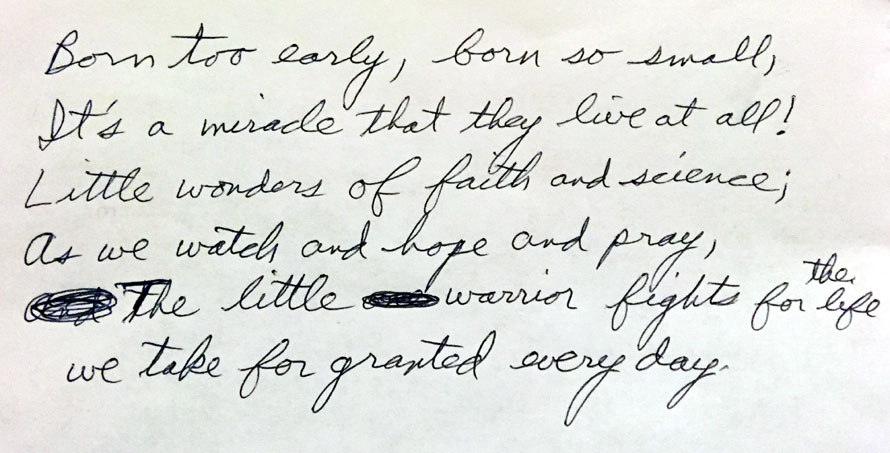 Born too early, born so small,
It's a miracle that they live at all!
Little wonders of faith and science;
As we watch and hope and pray,
The little warrior fights for the life
we take for granted every day.